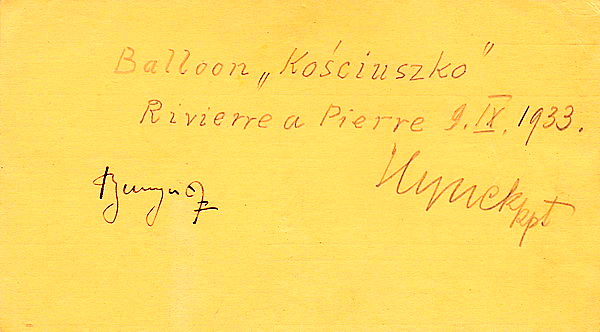 Balloon „Kościuszko"
Rivierre a Pierre 9. IX. 1933.
Hynek kpt